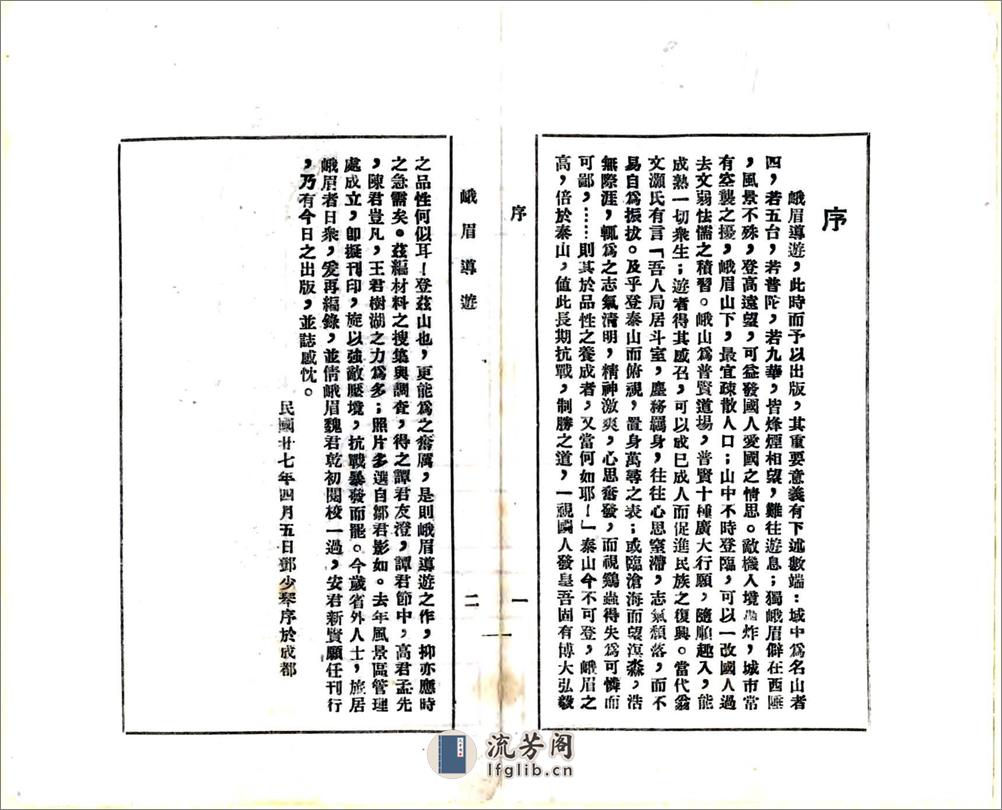 序
峨眉導遊，此時而予以出版，其重要意義有下述數端：域中爲名山者
四，若五台，若普陀，若九華，皆烽煙相望，難往遊息；獨峨眉僻在西陲
，風景不殊，登高遠望，可益發國人愛國之情思。敵機入境轟炸，城市常
有空襲之擾，峨眉山下，最宜疎散人口；山中不時登臨，可以一改國人過
去文弱怯懦之積習。峨山爲普賢道場，普賢十種廣大行願，隨順趣入，能
成熟一切衆生；遊者得其感召，可以成已成人而促進民族之復興。當代翁
文灝氏有言「吾人局居斗室，塵務羈身，往往心思窒滯，志氣頹落，而不
易自爲振拔。及乎登泰山而俯視，置身萬尋之表；或臨滄海而望溟淼，浩
無際涯，輒爲之志氣清明，精神激爽，心思奮發，而視鷄蟲得失爲可憐而
可鄙，……則其於品性之養成者，又當何如耶！」泰山今不可登，峨眉之
高，倍於泰山，值此長期抗戰，制勝之道，一視國人發皇吾固有博大弘毅
序
一
峨眉導遊
二
之品性何似耳！登茲山也，更能爲之奮厲，是則峨眉導遊之作，抑亦應時
之急需矣。茲編材料之搜集與調查，得之譚君友澄，譚君節中，高君孟先
，陳君豈凡，王君樹湖之力爲多；照片多選自鄒君影如。去年風景區管理
處成立，卽擬刊印，旋以強敵壓境，抗戰暴發而罷。今歲省外人士，旅居
峨眉者日衆，爰再編錄，並倩峨眉魏君乾初閱校一過，安君新賢願任刊行
，乃有今日之出版，並誌感忱。
民國廿七年四月五日鄧少琴序於成都
流芳阁
lfglib.cn